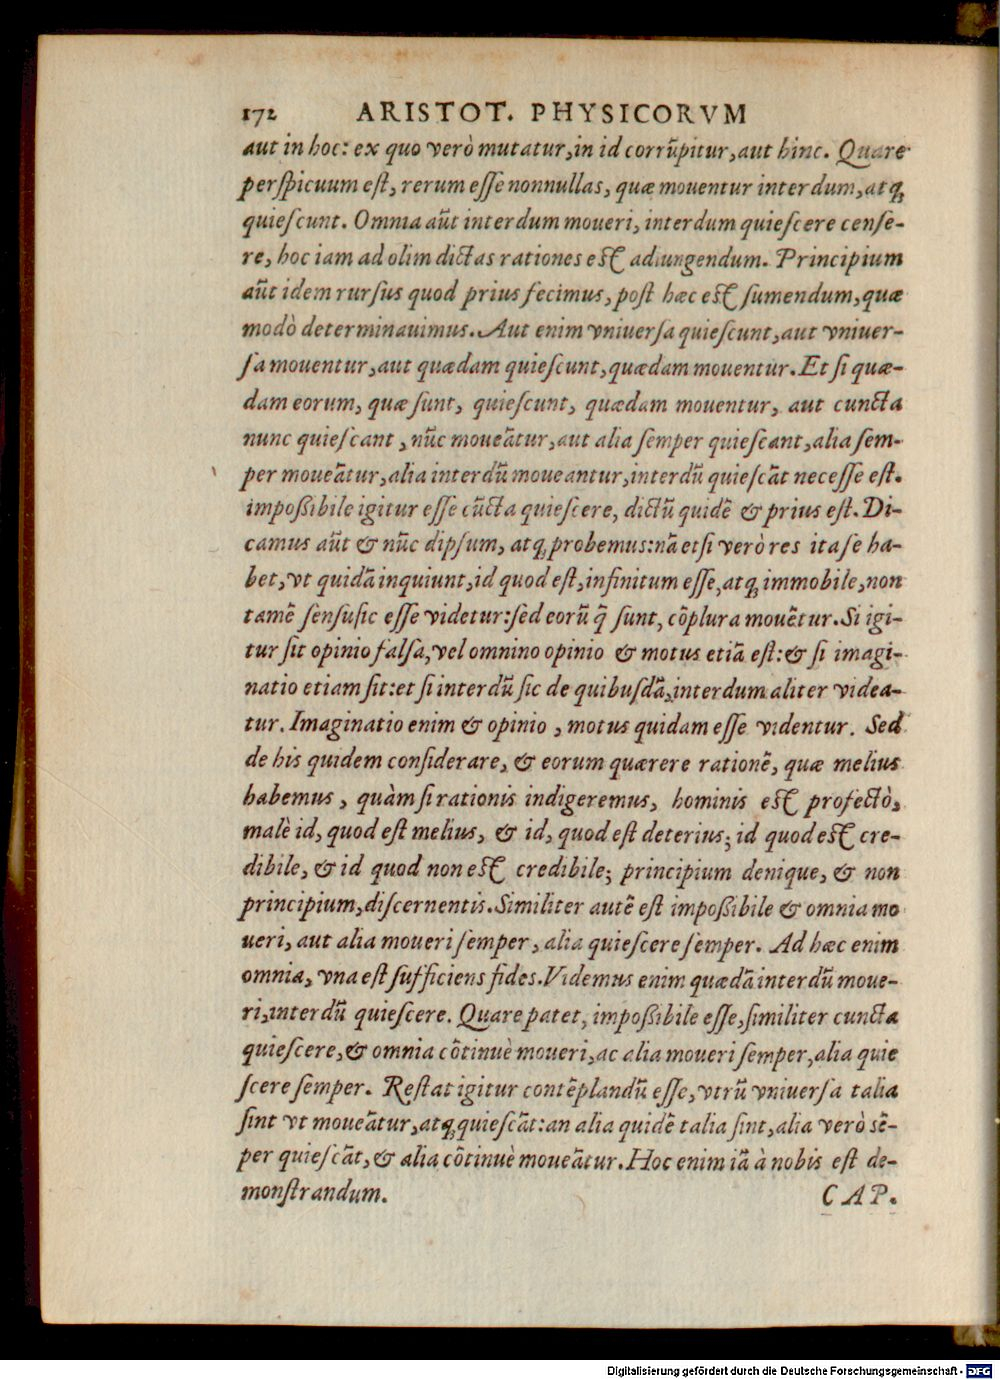 172 ARISTOT. PHYSICORVM
aut in hoc: ex quo verò mutatur, in id corrũpitur, aut hinc. Quare
perspicuum est, rerum esse nonnullas, quæ mouentur interdum, atq́
quiescunt. Omnia aũt interdum moueri, interdum quiescere cense-
re, hoc iam ad olim dictas rationes est adiungendum. Principium
aũt idem rursus quod prius fecimus, post hæc est sumendum, quæ
modò determinauimus. Aut enim vniuersa quiescunt, aut vniuer-
sa mouentur, aut quædam quiescunt, quædam mouentur. Et si quæ-
dam eorum, quæ sunt, quiescunt, quædam mouentur, aut cuncta
nunc quiescant, nũc moueãtur, aut alia semper quiescant, alia sem-
per moueãtur, alia interdũ moueantur, interdũ quiescãt necesse est.
impoßibile igitur esse cũcta quiescere, dictũ quidẽ & prius est. Di-
camus aũt & nũc dipsum, atq́ probemus: nã etsi verò res ita se ha-
bet, vt quidã inquiunt, id quod est, infinitum esse, atq́ immobile, non
tamẽ sensu sic esse videtur: sed eorũ q̃ sunt, cõplura mouẽtur. Si igi-
tur sit opinio falsa, vel omnino opinio & motus etiã est: & si imagi-
natio etiam sit: et si interdũ sic de quibusdã, interdum aliter videa-
tur. Imaginatio enim & opinio, motus quidam esse videntur. Sed
de his quidem considerare, & eorum quærere rationẽ, quæ melius
habemus, quàm si rationis indigeremus, hominis est profectò,
malè id, quod est melius, & id, quod est deterius; id quod est cre-
dibile, & id quod non est credibile; principium denique, & non
principium, discernentis. Similiter autẽ est impoßibile & omnia mo
ueri, aut alia moueri semper, alia quiescere semper. Ad hæc enim
omnia, vna est sufficiens fides. Videmus enim quædã interdũ moue-
ri, interdũ quiescere. Quare patet, impoßibile esse, similiter cuncta
quiescere, & omnia cõtinuè moueri, ac alia moueri semper, alia quie
scere semper. Restat igitur contẽplandũ esse, vtrũ vniuersa talia
sint vt moueãtur, atq́ quiescãt: an alia quidẽ talia sint, alia verò sẽ-
per quiescãt, & alia cõtinuè moueãtur. Hoc enim iã à nobis est de-
monstrandum. CAP.
Digitalisierung gefördert durch die Deutsche Forschungsgemeinschaft - DFG